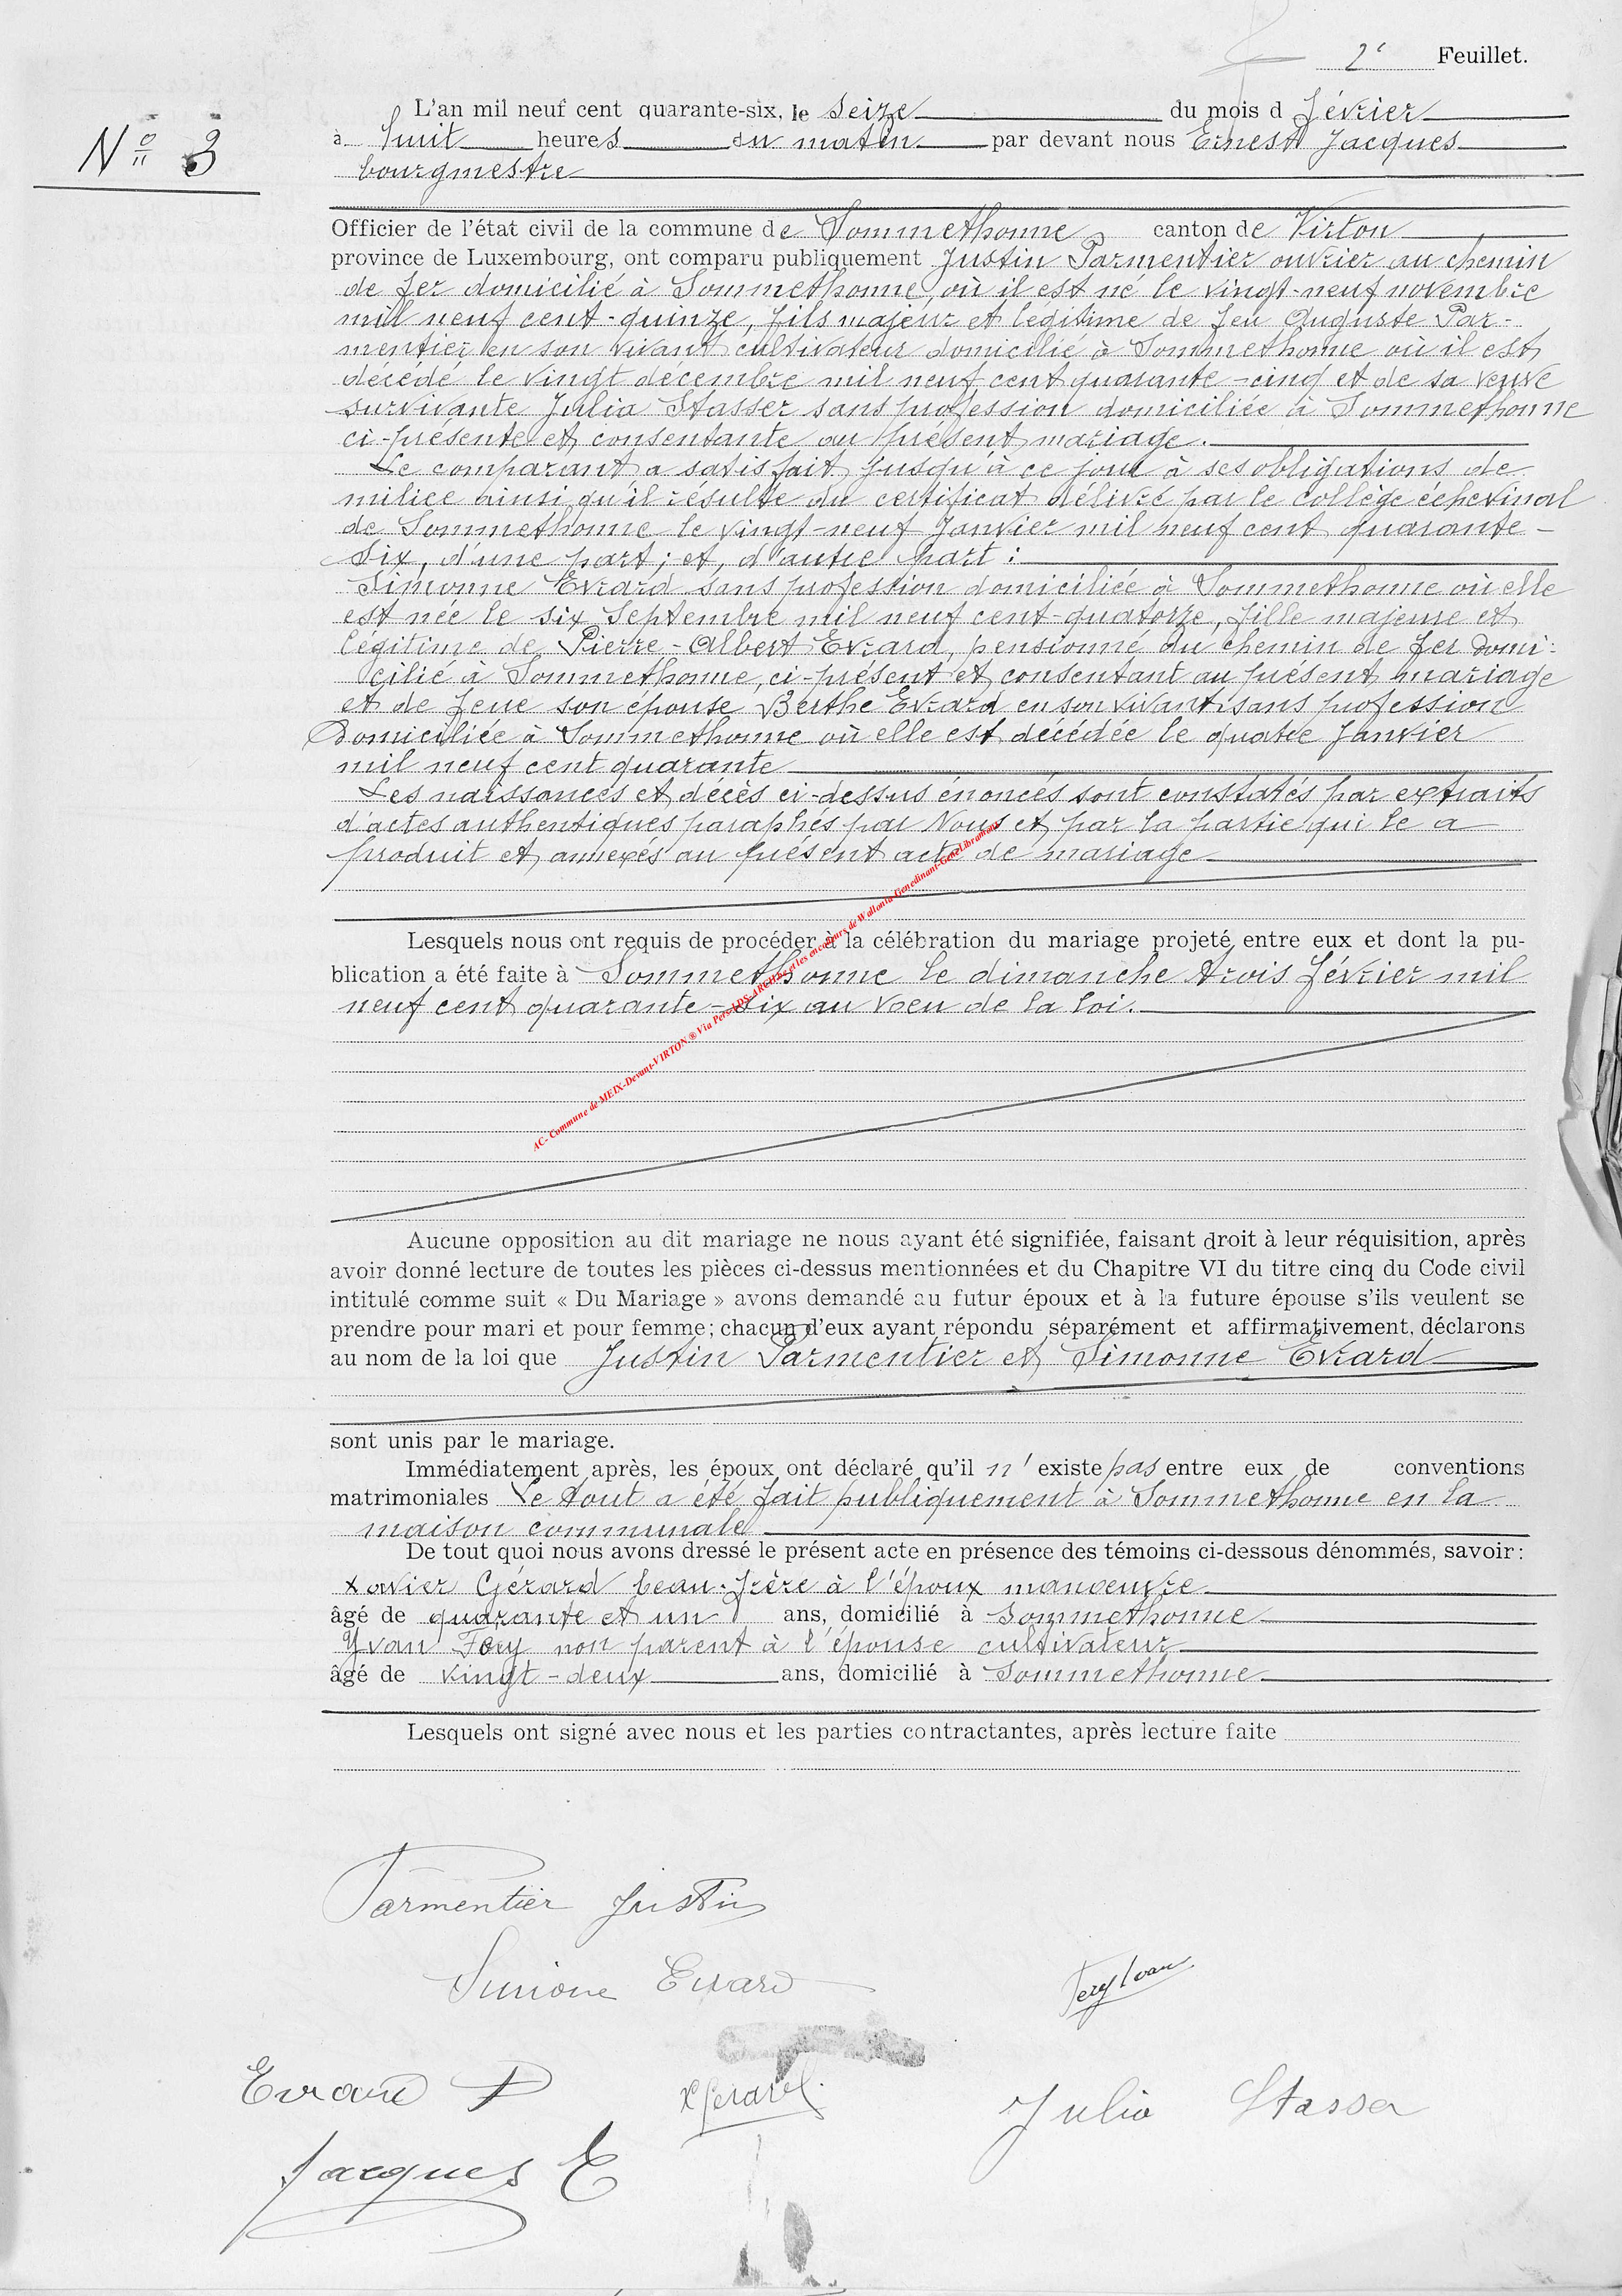 2e Feuillet.
N° 3
L'an mil neuf cent quarante-six, le seize du mois d février
à huit heures du matin par devant nous Ernest Jacques
bourgmestre
Officier de l'état civil de la commune de Sommethonne, canton de Virton
province de Luxembourg, ont comparu publiquement Justin Parmentier ouvrier au chemin
de fer domicilié à Sommethonne, où il est né le vingt-neuf novembre
mil neuf cent-quinze, fils majeur et légitime de feu Auguste Par-
mentier en son vivant cultivateur domicilié à Sommethonne où il est
décédé le vingt décembre mil neuf cent quarante-cinq et de sa veuve
survivante Julia Stasser sans profession domiciliée à Sommethonne
ci-présente et consentante au présent mariage.
Le comparant a satisfait jusqu'à ce jour à ses obligations de
milice ainsi qu'il résulte du certificat délivré par le collège échevinal
de Sommethonne le vingt-neuf Janvier mil neuf cent quarante-
six, d'une part; et, d'autre part :
Simonne Evrard sans profession domiciliée à Sommethonne où elle
est née le six Septembre mil neuf cent-quatorze, fille majeure et
légitime de Pierre-Albert Evrard, pensionné du chemin de fer domi-
cilié à Sommethonne, ci-présent et consentant au présent mariage
et de feue son épouse Berthe Evrard en son vivant sans profession
Domiciliée à Sommethonne où elle est décédée le quatre Janvier
mil neuf cent quarante
Les naissances et décès ci-dessus énoncés sont constatés par extraits
d'actes authentiques paraphés par Nous et par la partie qui le a
produit et annexés au présent acte de mariage
Lesquels nous ont requis de procéder à la célébration du mariage projeté entre eux et dont la pu-
blication a été faite à Sommethonne le dimanche trois février mil
neuf cent quarante-six au voeu de la loi.
AC- Commune de MEIX-Devant-VIRTON ® Via Pers-LDS-ARCH be et les encodeurs de Wallonia-Genedinant-GeneLibramont
Aucune opposition au dit mariage ne nous ayant été signifiée, faisant droit à leur réquisition, après
avoir donné lecture de toutes les pièces ci-dessus mentionnées et du Chapitre VI du titre cinq du Code civil
intitulé comme suit « Du Mariage » avons demandé au futur époux et à la future épouse s'ils veulent se
prendre pour mari et pour femme; chacun d'eux ayant répondu séparément et affirmativement, déclarons
au nom de la loi que Justin Parmentier et Simonne Evrard
sont unis par le mariage.
Immédiatement après, les époux ont déclaré qu'il n'existe pas entre eux de conventions
matrimoniales Le tout a été fait publiquement à Sommethonne en la
maison communale
De tout quoi nous avons dressé le présent acte en présence des témoins ci-dessous dénommés, savoir :
Xavier Gérard beau-frère à l'époux manoeuvre
âgé de quarante et un ans, domicilié à Sommethonne
Yvan Féry non parent à l'épouse cultivateur
âgé de vingt-deux ans, domicilié à Sommethonne
Lesquels ont signé avec nous et les parties contractantes, après lecture faite
Parmentier Justin
Simone Evrard
Fery Ivan
Evrard P
X Gerard.
Julia Stasser
Jacques E